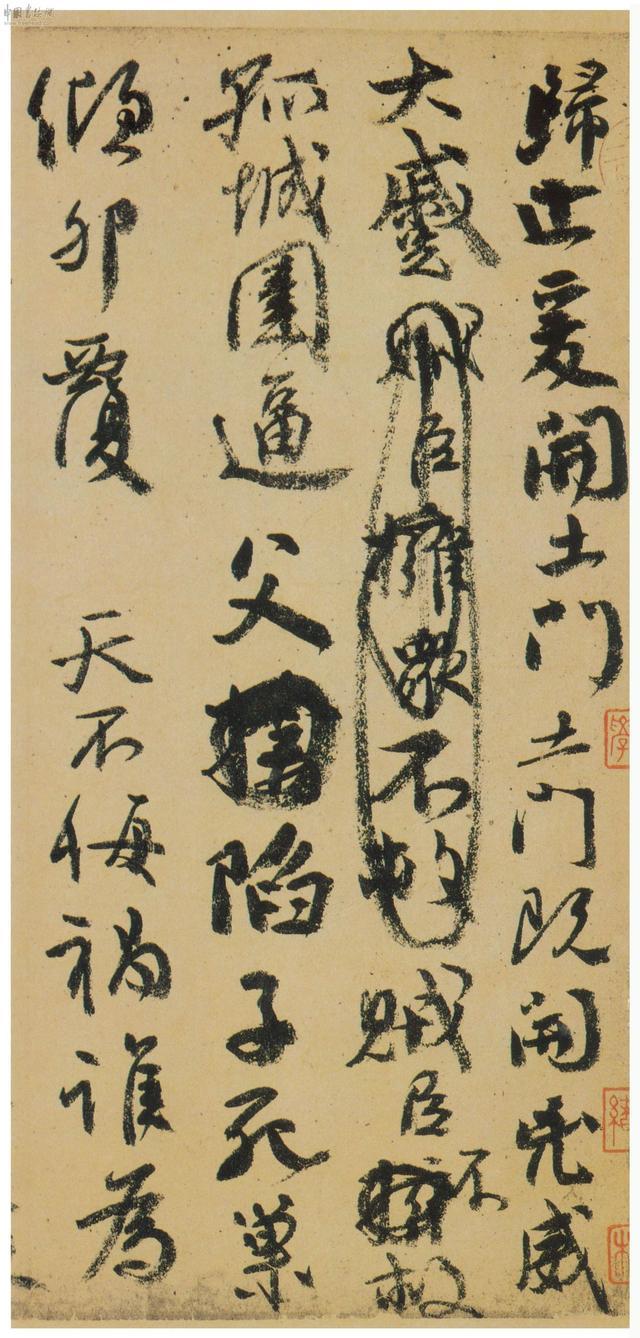 歸止爰開土門土門既開凶威
大蹙賊臣擁眾不救賊臣不救
孤城圍逼父陷子死巢
傾卵覆 天不悔禍誰為